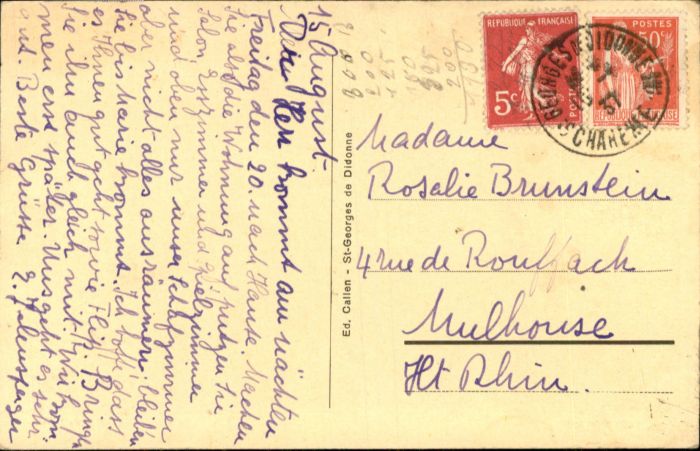 15 August.
Der Herr kommt am nächsten
Freitag den 20. nach Hause. Machen
Sie also die Wohnung auf, putzen Sie
Salon Esszimmer und
und oben nur unser Schlafzimmer
aber nicht alles ausräumen bleiben
Sie bis Marie kommt. Ich hoffe dass
es Ihnen gut geht sowie Flip. Bringen
Sie ihn auch gleich mit. Wir kom-
men erst später. Uns geht es sehr
gut. Beste Grüsse
Ed. Callen - St-Georges de Didonne
REPUBLIQUE FRANÇAISE
5c
POSTES
POSTES
50c
REPUBLIQUE FRANÇAISE
ST GEORGES DE DIDONNE
CHARENTE
Madame
Rosalie Brunstein
4 rue de Rouffach
Mulhouse
Ht Rhin.